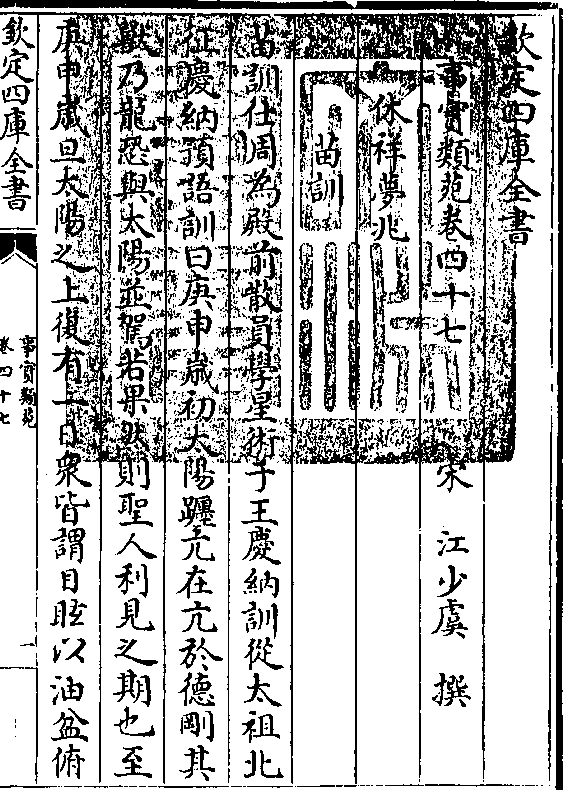 欽定四庫全書
事實類苑卷四十七
宋 江少虞 撰
休祥夢兆
苗訓
苗訓仕周為殿前散員學星術于王慶納訓從太祖北
征慶納預語訓曰庚申歲初太陽躔亢在亢於德剛其
獸乃龍恐與太陽並駕若果然則聖人利見之期也至
庚申歲旦太陽之上復有一日衆皆謂目眩以油盆俯
欽定四庫全書
事實類苑
卷四十七
一